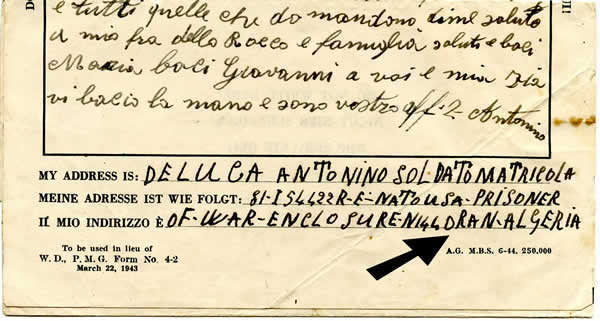 e tutti quelle che do mandono dime saluto
a mio fra dello Rocco e famiglia saluti e baci
Maria baci Giovanni a voi e mia zia
vi bacio la mano e sono vostro aff. Antonino
MY ADDRESS IS: DELUCA ANTONINO SOLDATO MATRICOLA
MEINE ADRESSE IST WIE FOLGT: 81-I54422R-E-NATOUSA-PRISONER
IL MIO INDIRIZZO È OF-WAR-ENCLOSURE-N144 ORAN-ALGERIA
To be used in lieu of
W. D., P. M. G. Form No. 4-2
March 22, 1943
A.G. M.B.S. 6-44. 250,000